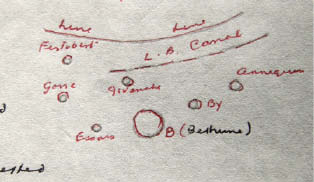 Line Line
Festubert
L. B. Canal
Annequin
Gorre
Givenchy
By
Essars
B (Bethune)